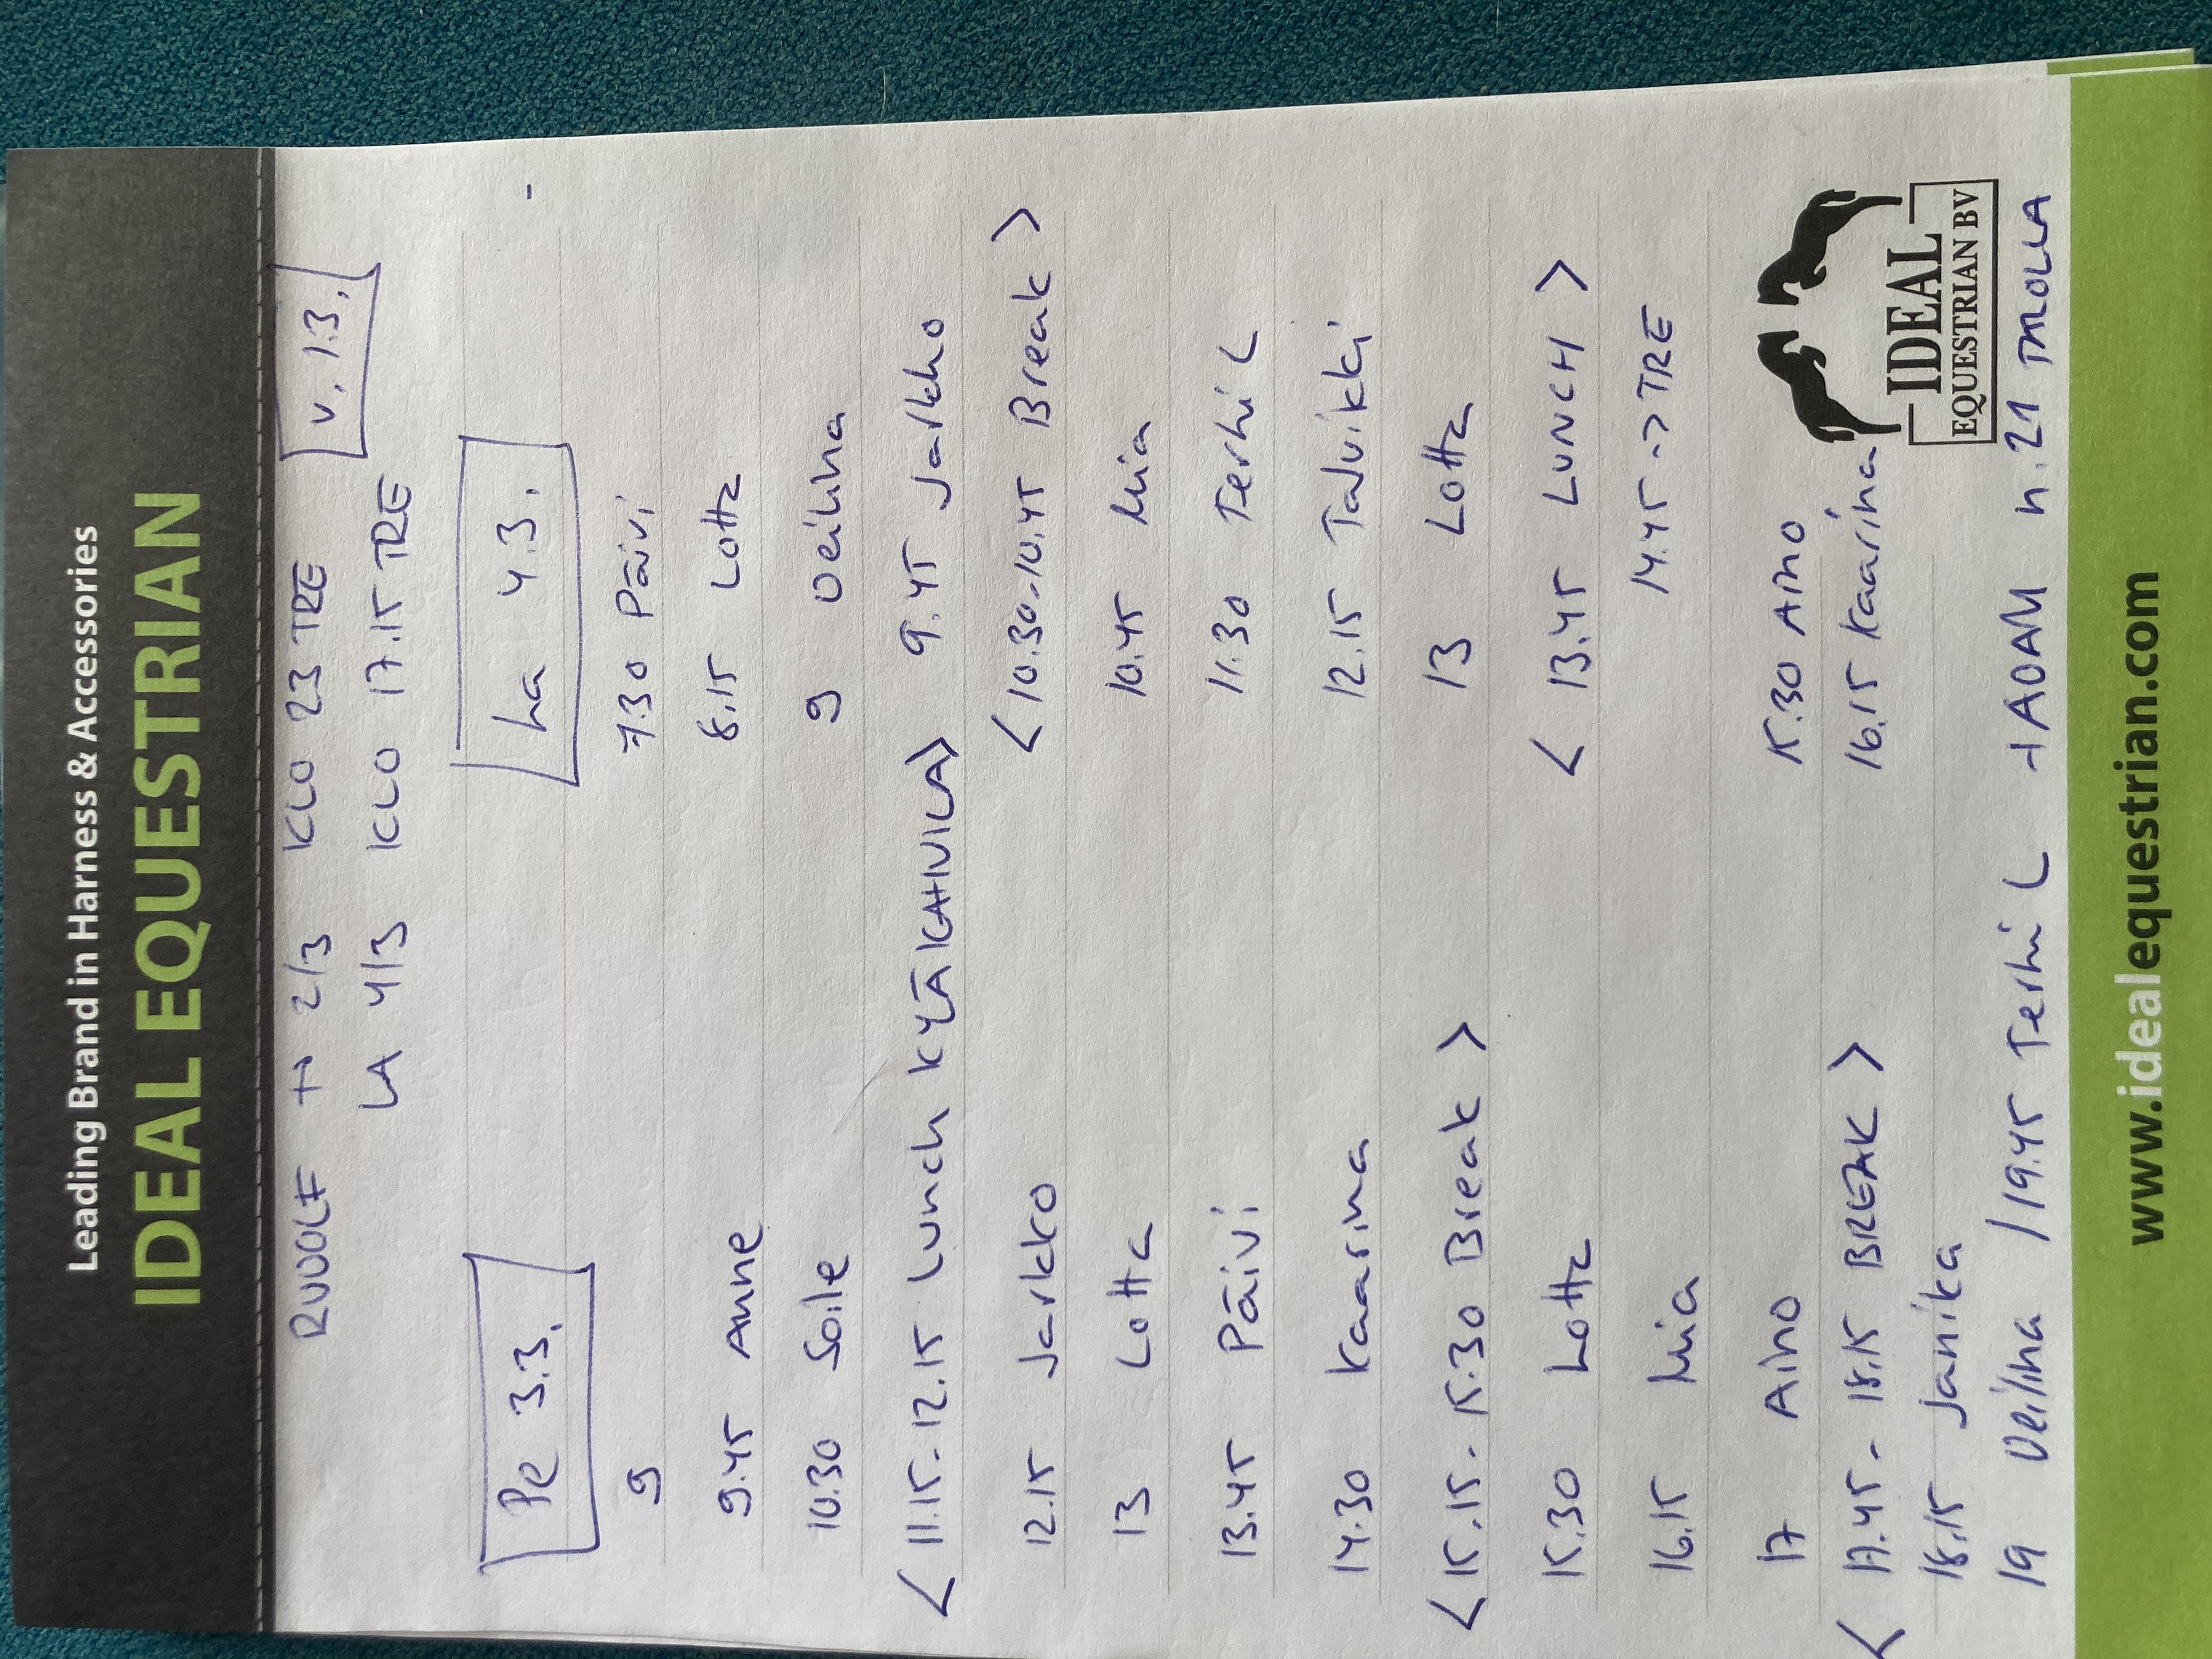 Leading Brand in Harness & Accessories
IDEAL EQUESTRIAN
RUDOLF TO 2/3 KLO 23 TRE
v. 1.3.
LA 4/3 KLO 17.15 TRE
Pe 3.3.
La 4.3.
9
7.30 Päivi
9.45 Anne
8.15 Lotta
10.30 Soile
9 Veilma
<11.15-12.15 Lunch KYÄKAHVILA>
9.45 Jarkko
12.15 Jarkko
<10.30-10.45 Break>
13 Lotta
10.45 Mia
13.45 Päivi
11.30 Terhi L
14.30 Kaarina
12.15 Talvikki
<15.15-15.30 Break>
13 Lotta
15.30 Lotta
<13.45 LUNCH>
16.15 Mia
14.45 -> TRE
17 Aino
15.30 Aino
<17.45-18.15 BREAK>
16.15 Kaarina
18.15 Janika
19 Veilma / 19.45 Terhi L + ADAM n.21
IDEAL
EQUESTRIAN BV
www.idealequestrian.com